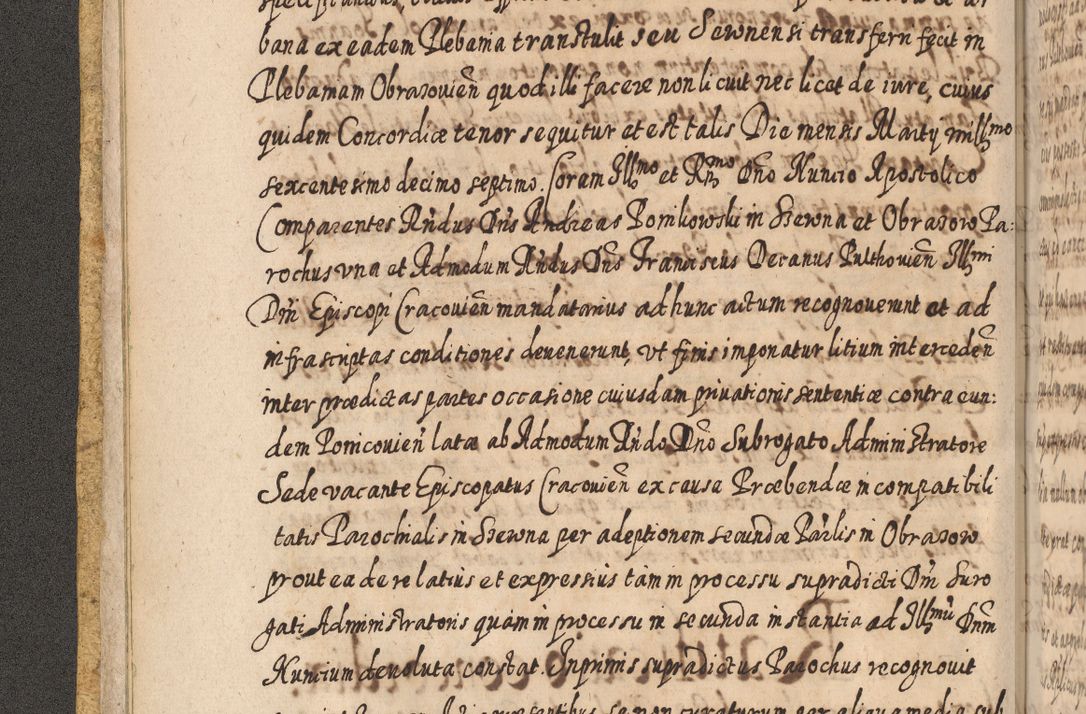 bana ex eadem Plebania transtulit seu Sewnensi transferri fecit in
Plebaniam Obrazouień quod illi facere non licuit nec licet de iure, cuius
quidem Concordiæ tenor sequitur et est talis Die mensis Martij mill̃mo
sexcentesimo decimo septimo. Coram Illmo et Rmo Dño Nuncio Apostolico
Comparentes Rndus Dns Andreas Pomikowski in Szewna et Obrazow Pa:
rochus vna et Admodum Rndus Dns Franciscus Decanus Pulthouień Illmi
Dni Episcopi Cracouień mandatarius ad hunc actum recognouerunt et ad
infrascriptas conditiones deuenerunt, vt finis imponatur litium interceden̄
inter prædictas partes occasione cuiusdam priuationis sententiæ contra eun:
dem Pomicouień latæ ab Admodum Rndo Dño Subrogato Administratore
Sede vacante Episcopatus Cracouień ex causa Præbendæ incompatibili
tatis Parochialis in Szewna per adeptionem secundæ Parlis in Obrazow
prout ea de re latius et expressius tam in processu supradicti Dni Suro
gati Administratoris quam in processu in secunda instantia ad Illmu Dnm
Nuncium deuoluta constat. Inprimis supradictus Parochus recognouit